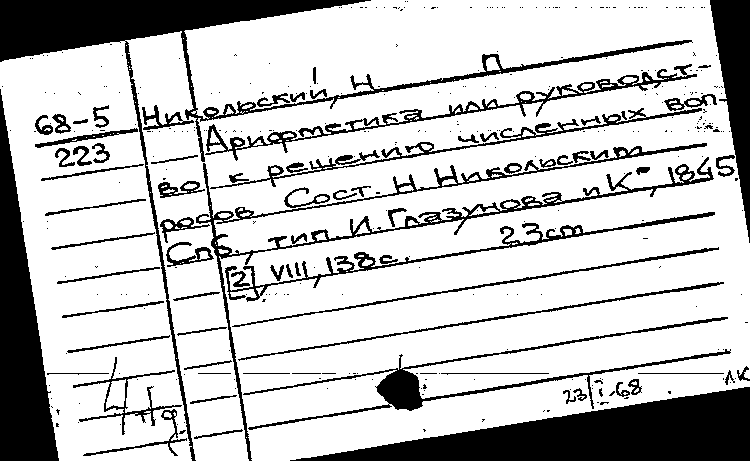 68-5
223
Никольский, Н П
Арифметика или руководст-
во к решению численных воп-
росов Сост. Н. Никольским
Спб., тип. И. Глазунова и К°, 1845
[2], VIII, 138 с. 23 cm
23/I-68
ЛК